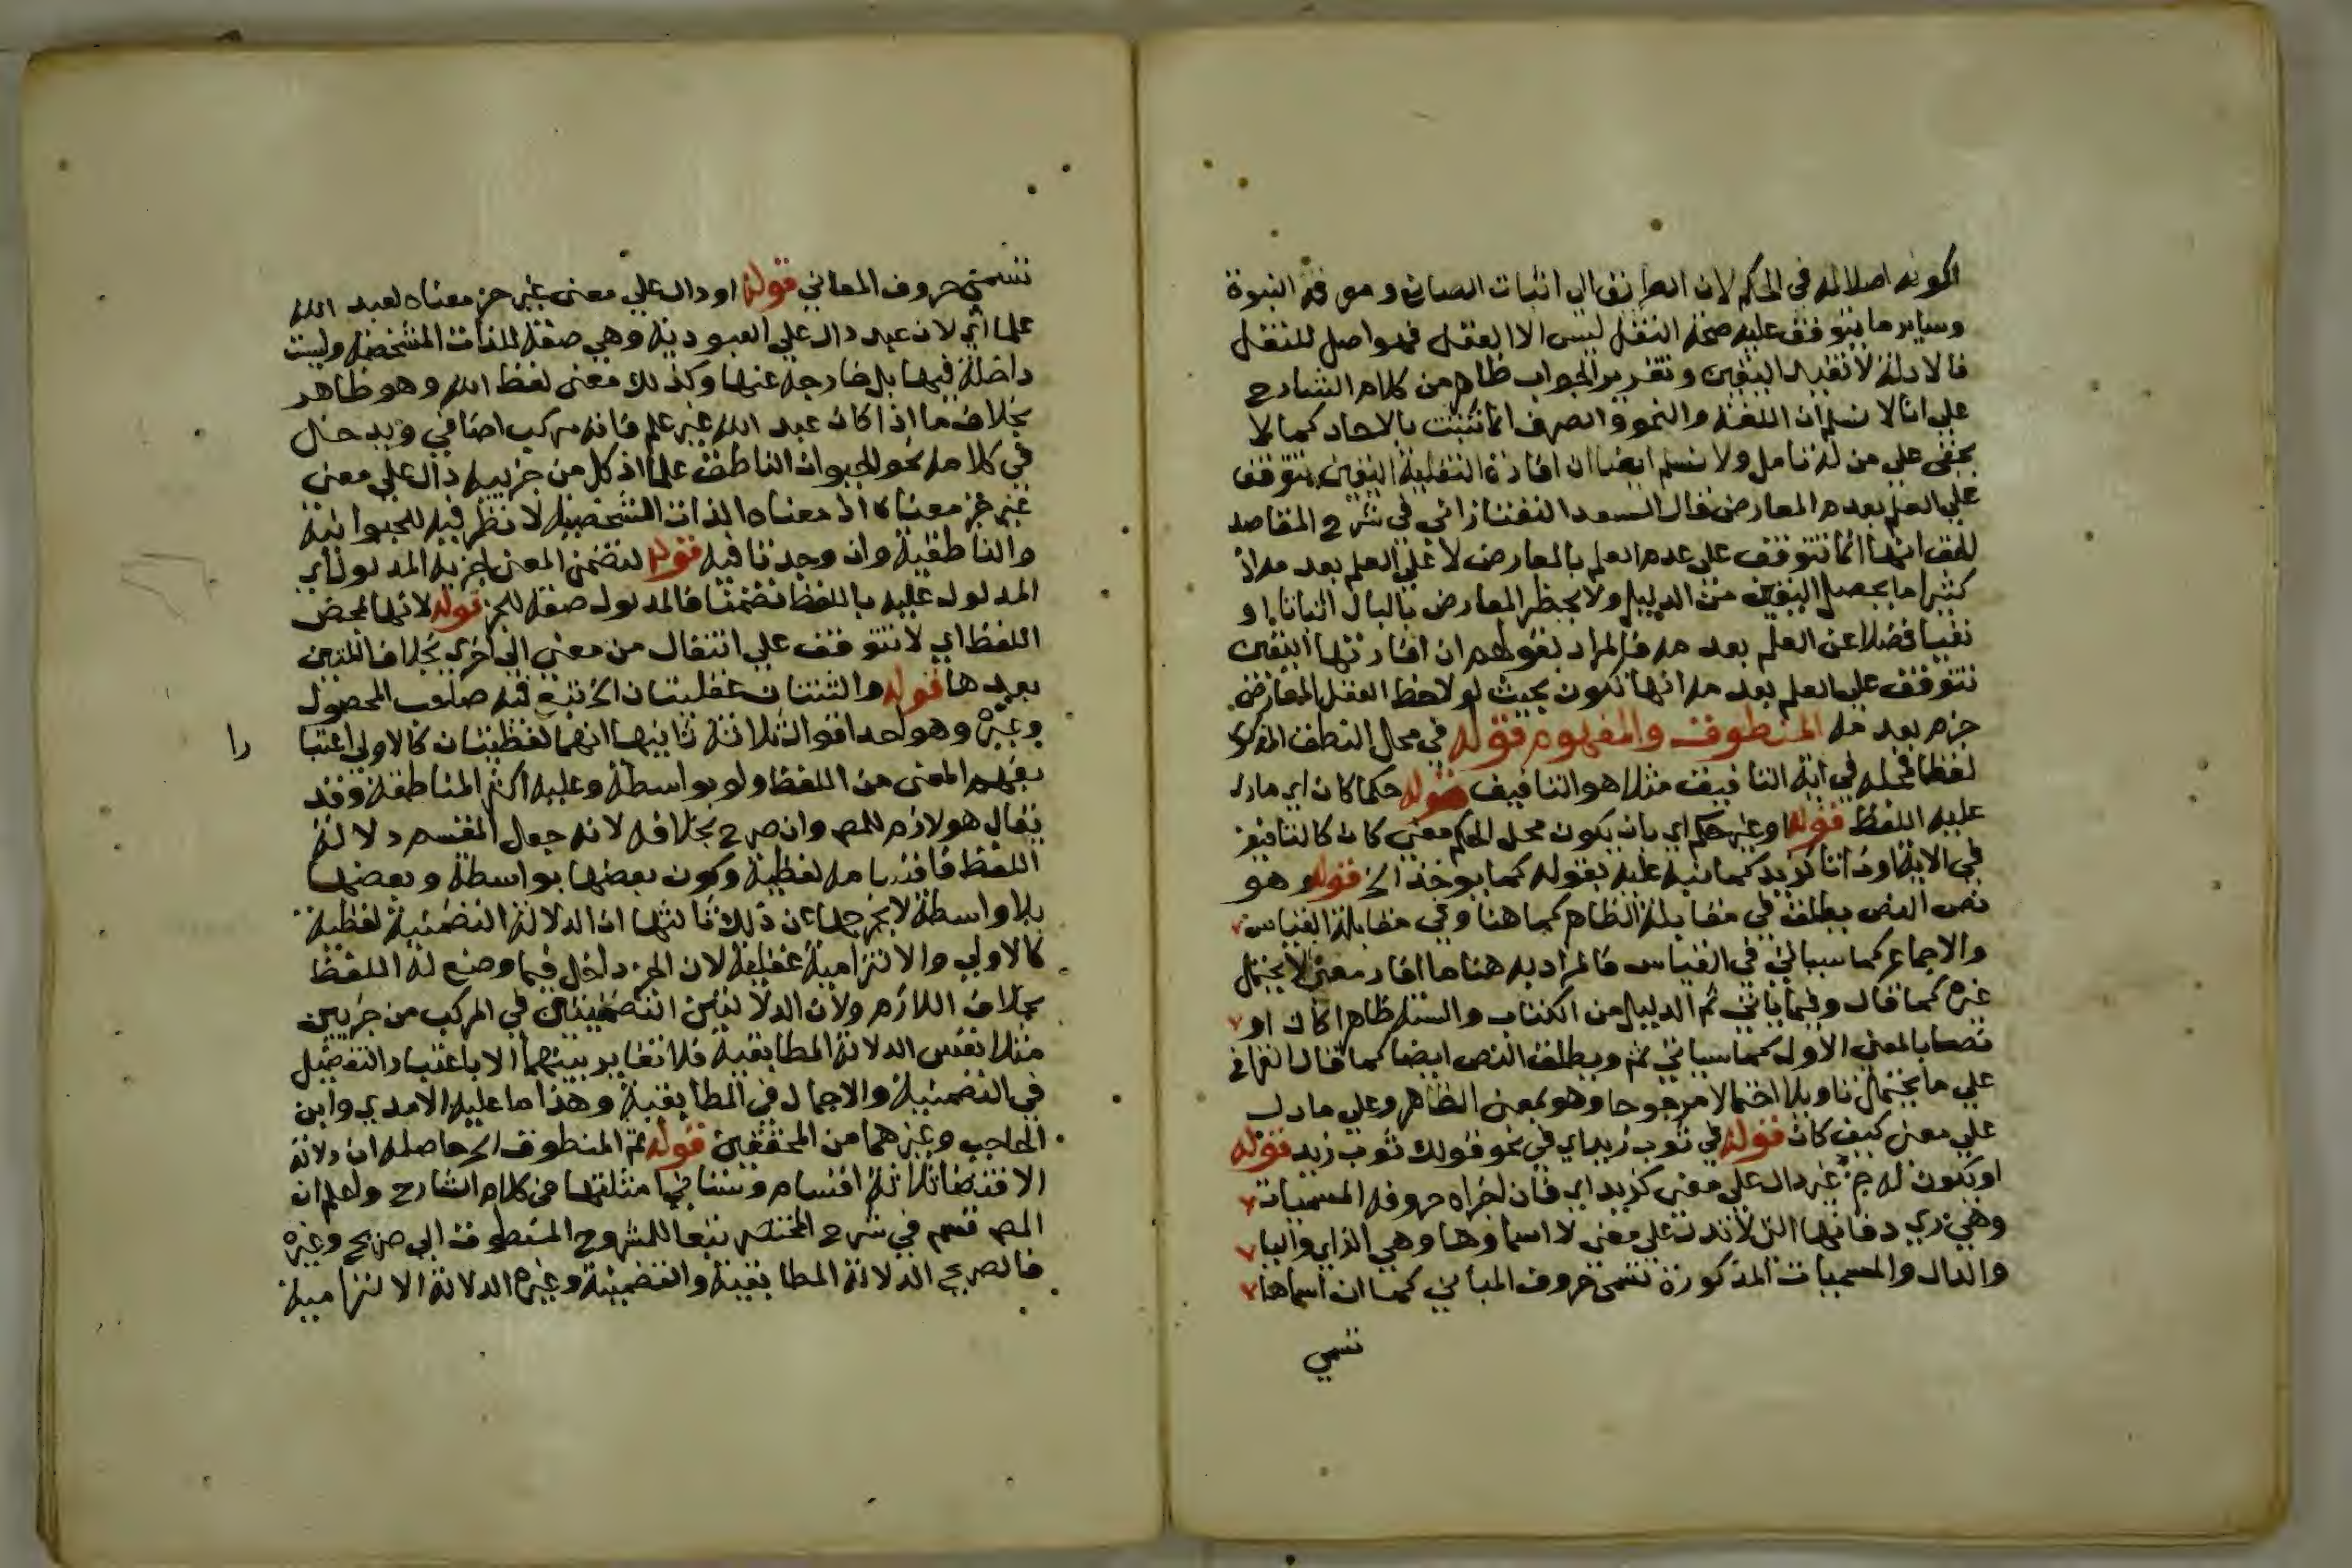 لكونه اصلا له في الحكم لان الطريق الى اثبات الصانع ومعرفة النبوة
وساير ما يتوقف عليه صحة النقل ليس الا العقل فهو اصل للنقل
فالادلة لا تفيد اليقين وتقرير الجواب ظاهر من كلام الشارح
على انا لا نسلم ان اللغة والنحو والصرف انما تثبت بالاحاد كما لا
يخفى على من له تامل ولا نسلم ايضا ان افادة النقلية اليقين يتوقف
على العلم بعدم المعارض فقال السعد التفتازاني في شرح المقاصد
الحق انها انما تتوقف على عدم العلم بالمعارض لا على العلم بعدمه اذ
كثيرا ما يحصل اليقين من الدليل ولا يخطر المعارض بالبال اثباتا او
نفيا فضلا عن العلم بعدمه فالمراد بقولهم ان افادتها اليقين
تتوقف على العلم بعدمه انها تكون بحيث لو لاحظ العقل المعارض
جزم بعدمه المنطوق والمفهوم قوله في محل النطق المذكور
لفظا فمحله في اية التافيف مثلا هو التافيف قوله حكما كان اي ما دل
عليه اللفظ قوله او غير حكم اي بان يكون محل الحكم معنى كان كالتافيف
في الاية او ذاتا كزيد كما نبه عليه بقوله كما يوخذ الخ قوله وهو
نص النص يطلق في مقابلة الظاهر كما هنا وفي مقابلة القياس
والاجماع كما سياتي في القياس فالمراد به هنا ما افاد معنى لا يحتمل
غيره كما قال وفيما ياتي ثم الدليل من الكتاب والسنة ظاهرا كان او
نصا بالمعنى الاول كما سياتي ثم ويطلق النص ايضا كما قال القرافي
على ما يحتمل تاويلا احتمالا مرجوحا وهو بمعنى الظاهر وعلى ما دل
على معنى كيف كان قوله في ثوب زيد اي في نحو قولك ثوب زيد قوله
او يكون له جزء غير دال على معنى كزيد اي فان اجزاه حروفه المسميات
وهي زي د فانها التي لا تدل على معنى لا اسماوها وهي الزاي واليا
والدال والمسميات المذكورة تسمى حروف المباني كما ان اسماها
تسمى
تسمى حروف المعاني قوله او دال على معنى غير جز معناه لعبد الله
علما اي لان عبد دال على العبودية وهي صفة للذات المشخصة وليست
داخلة فيها بل خارجة عنها وكذلك معنى لفظ الله وهو ظاهر
بخلاف ما اذا كان عبد الله غير علم فانه مركب اضافي ويدخل
في كلامه نحو الحيوان الناطق علما اذ كل من جزييه دال على معنى
غير جز معناه اذ معناه الذات الشخصية لا نظر فيه للحيوانية
والناطقية وان وجدتا فيه قوله لتضمن المعنى لجزيه المدلول اي
المدلول عليه باللفظ تضمنا فالمدلول صفة للجز قوله لانها بمحض
اللفظ اي لا تتوقف على انتقال من معنى الى اخرى بخلاف اللتين
بعدها قوله والثنتان عقليتان الخ تبع فيه صاحب المحصول
وغيره وهو احد اقوال ثلاثة ثانيها انهما لفظيتان كالاولى اعتبا را
بفهم المعنى من اللفظ ولو بواسطة وعليه اكثر المناطقة وقد
يقال هو لازم للمص وان صرح بخلافه لانه جعل المقسم دلالة
اللفظ فاقسامه لفظية وكون بعضها بواسطة وبعضها
بلا واسطة لا يخرجها عن ذلك ثالثها ان الدلالة التضمنية لفظية
كالاولى والالتزامية عقلية لان الجز داخل فيما وضع له اللفظ
بخلاف اللازم ولان الدلالتين التضمنيتين في المركب من جزيين
مثلا نفس الدلالة المطابقية فلا تغاير بينهما الا باعتبار التفصيل
في التضمنية والاجمال في المطابقية وهذا ما عليه الامدي وابن
الحاجب وغيرهما من المحققين قوله ثم المنطوق الخ حاصله ان دلالة
الاقتضا ثلاثة اقسام وستاتي امثلتها من كلام الشارح واعلم ان
المص قسم في شرح المختصر تبعا للمشروح المنطوق الى صريح وغيره
فالصريح الدلالة المطابقية والتضمنية وغيره الدلالة الالتزامية